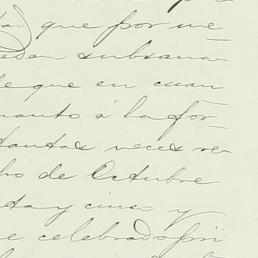 que por me
eden subsana
de que en cuan
uanto á la for
tantas veces re
ho de Octubre
nta y cinco y
e celebrado